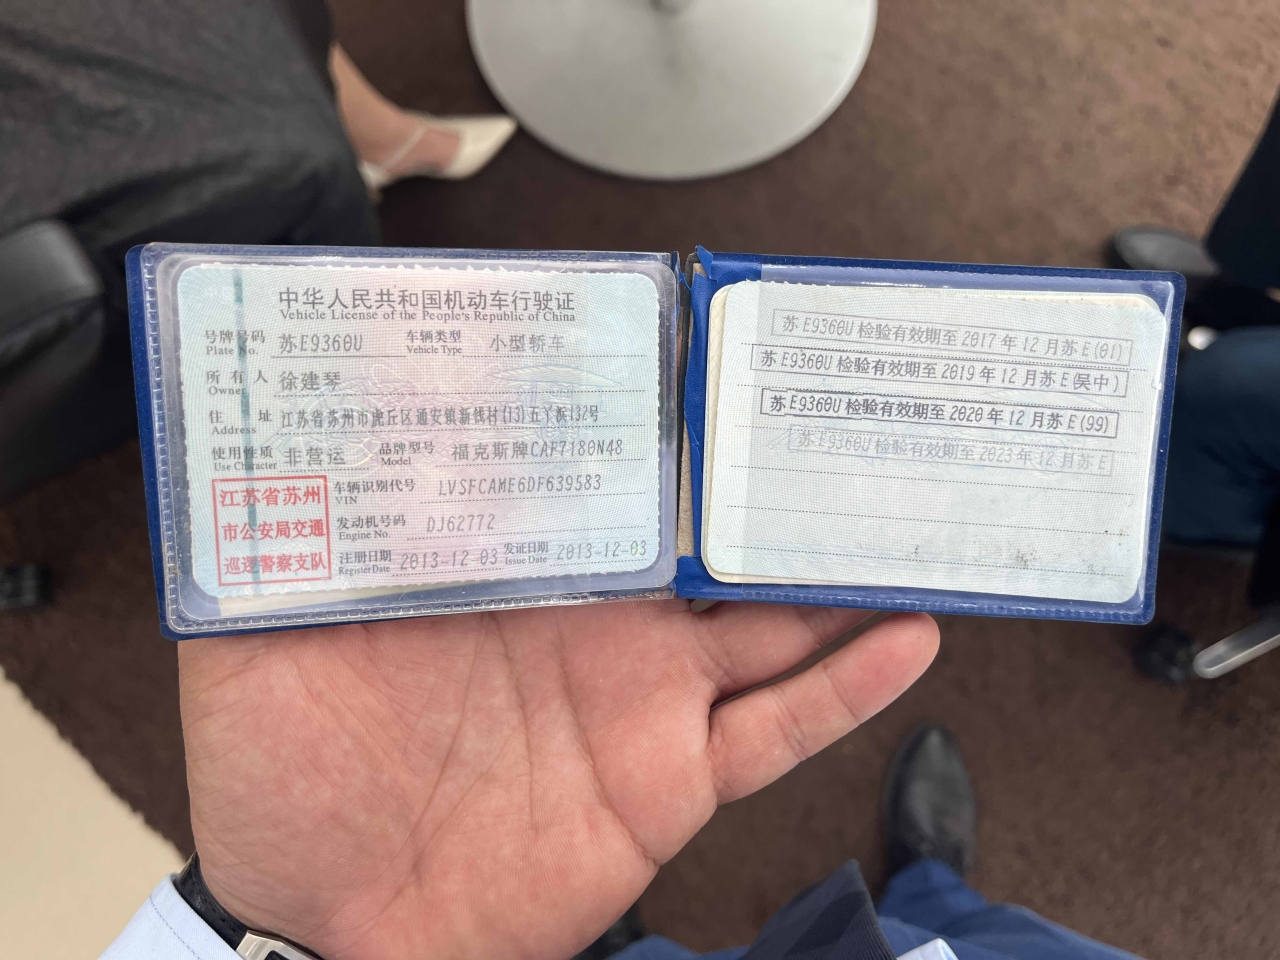 中华人民共和国机动车行驶证
Vehicle License of the People's Republic of China
号牌号码 Plate No. 苏E9360U 车辆类型 Vehicle Type 小型轿车
所有人 Owner 徐建琴
住址 Address 江苏省苏州市虎丘区通安镇新钱村(13)五丫浜132号
使用性质 Use Character 非营运 品牌型号 Model 福克斯牌CAF7180N48
江苏省苏州
市公安局交通
巡逻警察支队
车辆识别代号 VIN LVSFCAME6DF639583
发动机号码 Engine No. DJ62772
注册日期 Register Date 2013-12-03 发证日期 Issue Date 2013-12-03
苏E9360U检验有效期至2017年12月苏E(01)
苏E9360U检验有效期至2019年12月苏E(吴中)
苏E9360U检验有效期至2020年12月苏E(99)
苏E9360U检验有效期至2023年12月苏E